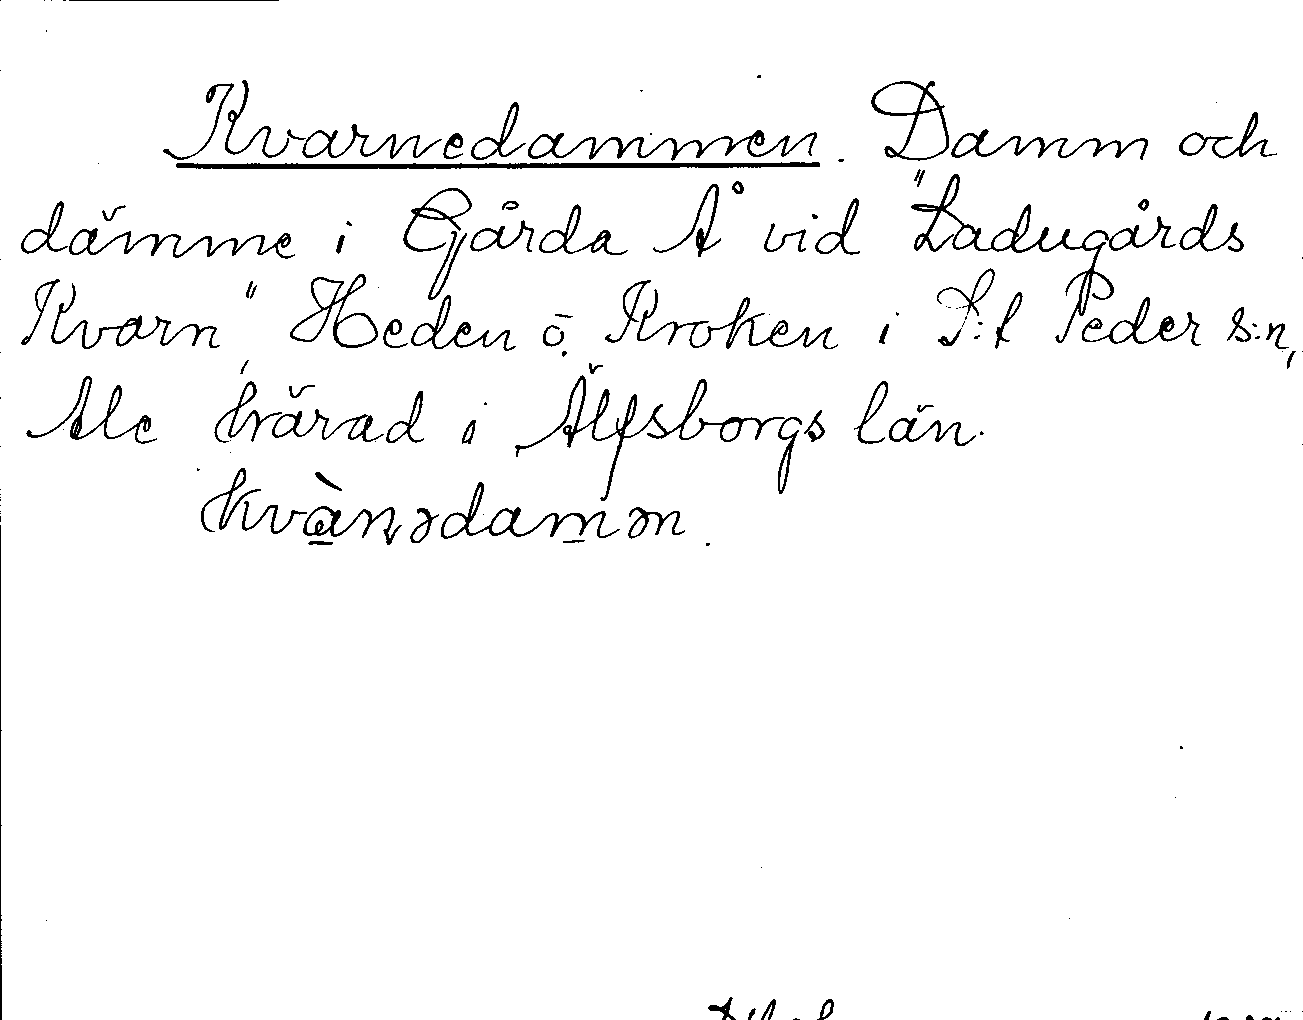 Kvarnedammen. Damm och
dämme i Gårda Å vid "Ladugårds
Kvarn", Heden ö. Kroken i S:t Peder s:n,
Ale härad i Älfsborgs län.
kvànədamən.